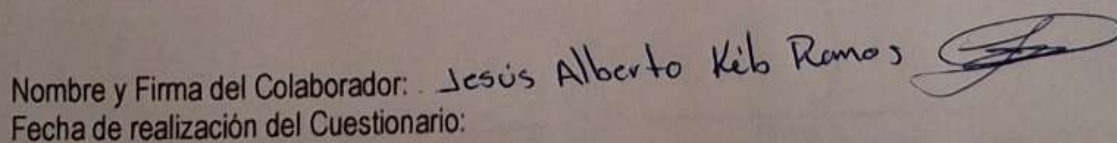 Nombre y Firma del Colaborador: Jesús Alberto Kéb Ramos
Fecha de realización del Cuestionario: